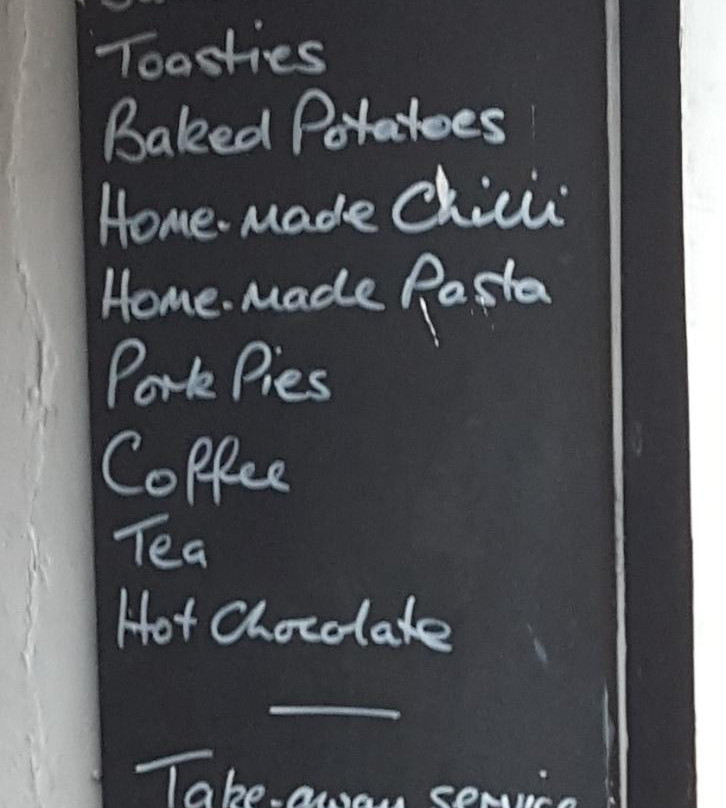 Toasties
Baked Potatoes
Home-made Chilli
Home-made Pasta
Pork Pies
Coffee
Tea
Hot Chocolate
Take-away service